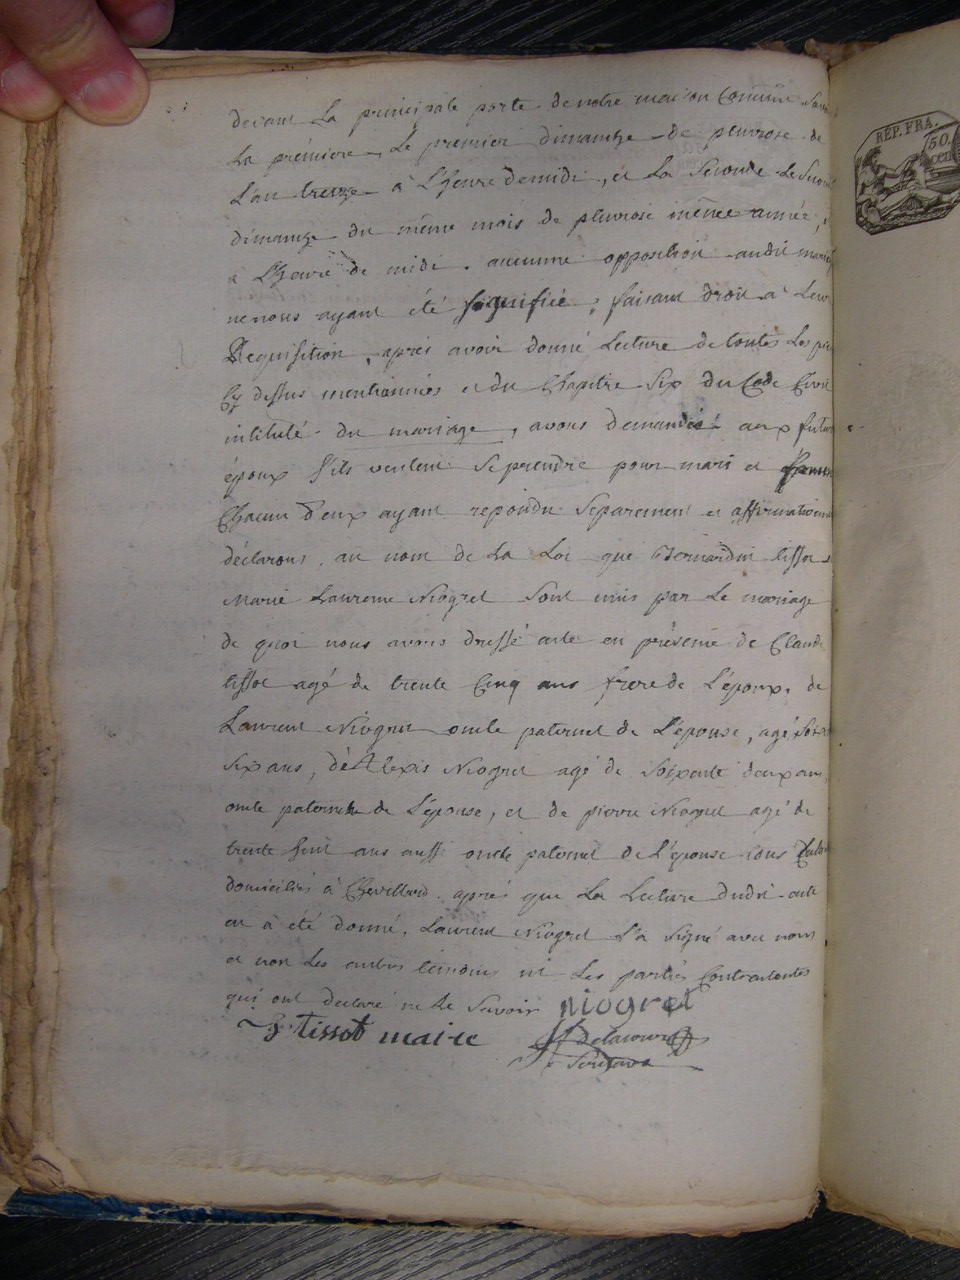 devant La principale porte de notre maison Commune Savoir
La première Le premier dimanche de pluviose de
L'an treize à L'heure de midi, et La Seconde Le Second
dimanche du même mois de pluviose même année,
à L'heure de midi. aucunne opposition audit mariage
ne nous ayant été signifiée, faisant droit à Leur
Requisition, après avoir donné Lecture de toutes Les pièces
Cy dessus mentionnées et du Chapitre Six du Code Civil
intitulé du mariage, avons demandé aux futurs
époux S'ils veulent Se prendre pour mari et femme
Chacun d'eux ayant repondu Separement et affirmativement
déclarons, au nom de La Loi que Bernardin tissot et
Marie Laurence Niogret Sont unis par Le mariage
de quoi nous avons dressé acte en présence de Claude
tissot agé de trente Cinq ans frere de L'époux, de
Laurent Niogret oncle paternel de L'épouse, agé
Six ans, d'Alexis Niogret agé de Soixente deux ans
oncle paternel de L'épouse, et de pierre Niogret agé de
trente huit ans aussi oncle paternel de L'épouse tous
domiciliés à Chevillard. après que La Lecture dudit acte
en à été donné, Laurent Niogret L'a Signé avec nous
et non Les autres témoins ni Les parties Contractantes
qui ont declaré ne Le Savoir niogret
tissot maire Delacour